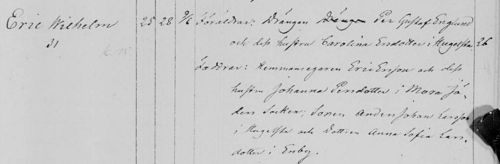 Eric Wilhelm 25 28 9/2 Föräldrar: Drängen Drängen Per Gustaf Englund
31 och dess hustru Carolina Ersdotter i Hugelsta 26
Faddrar: Hemmansegaren Eric Ersson och dess
hustru Johanna Persdotter i Mora Jä
ders Socken; Sonen Anders Johan Larsson
i Hugelsta och Dottren Anna Sofia Lars
dotter i Enby.